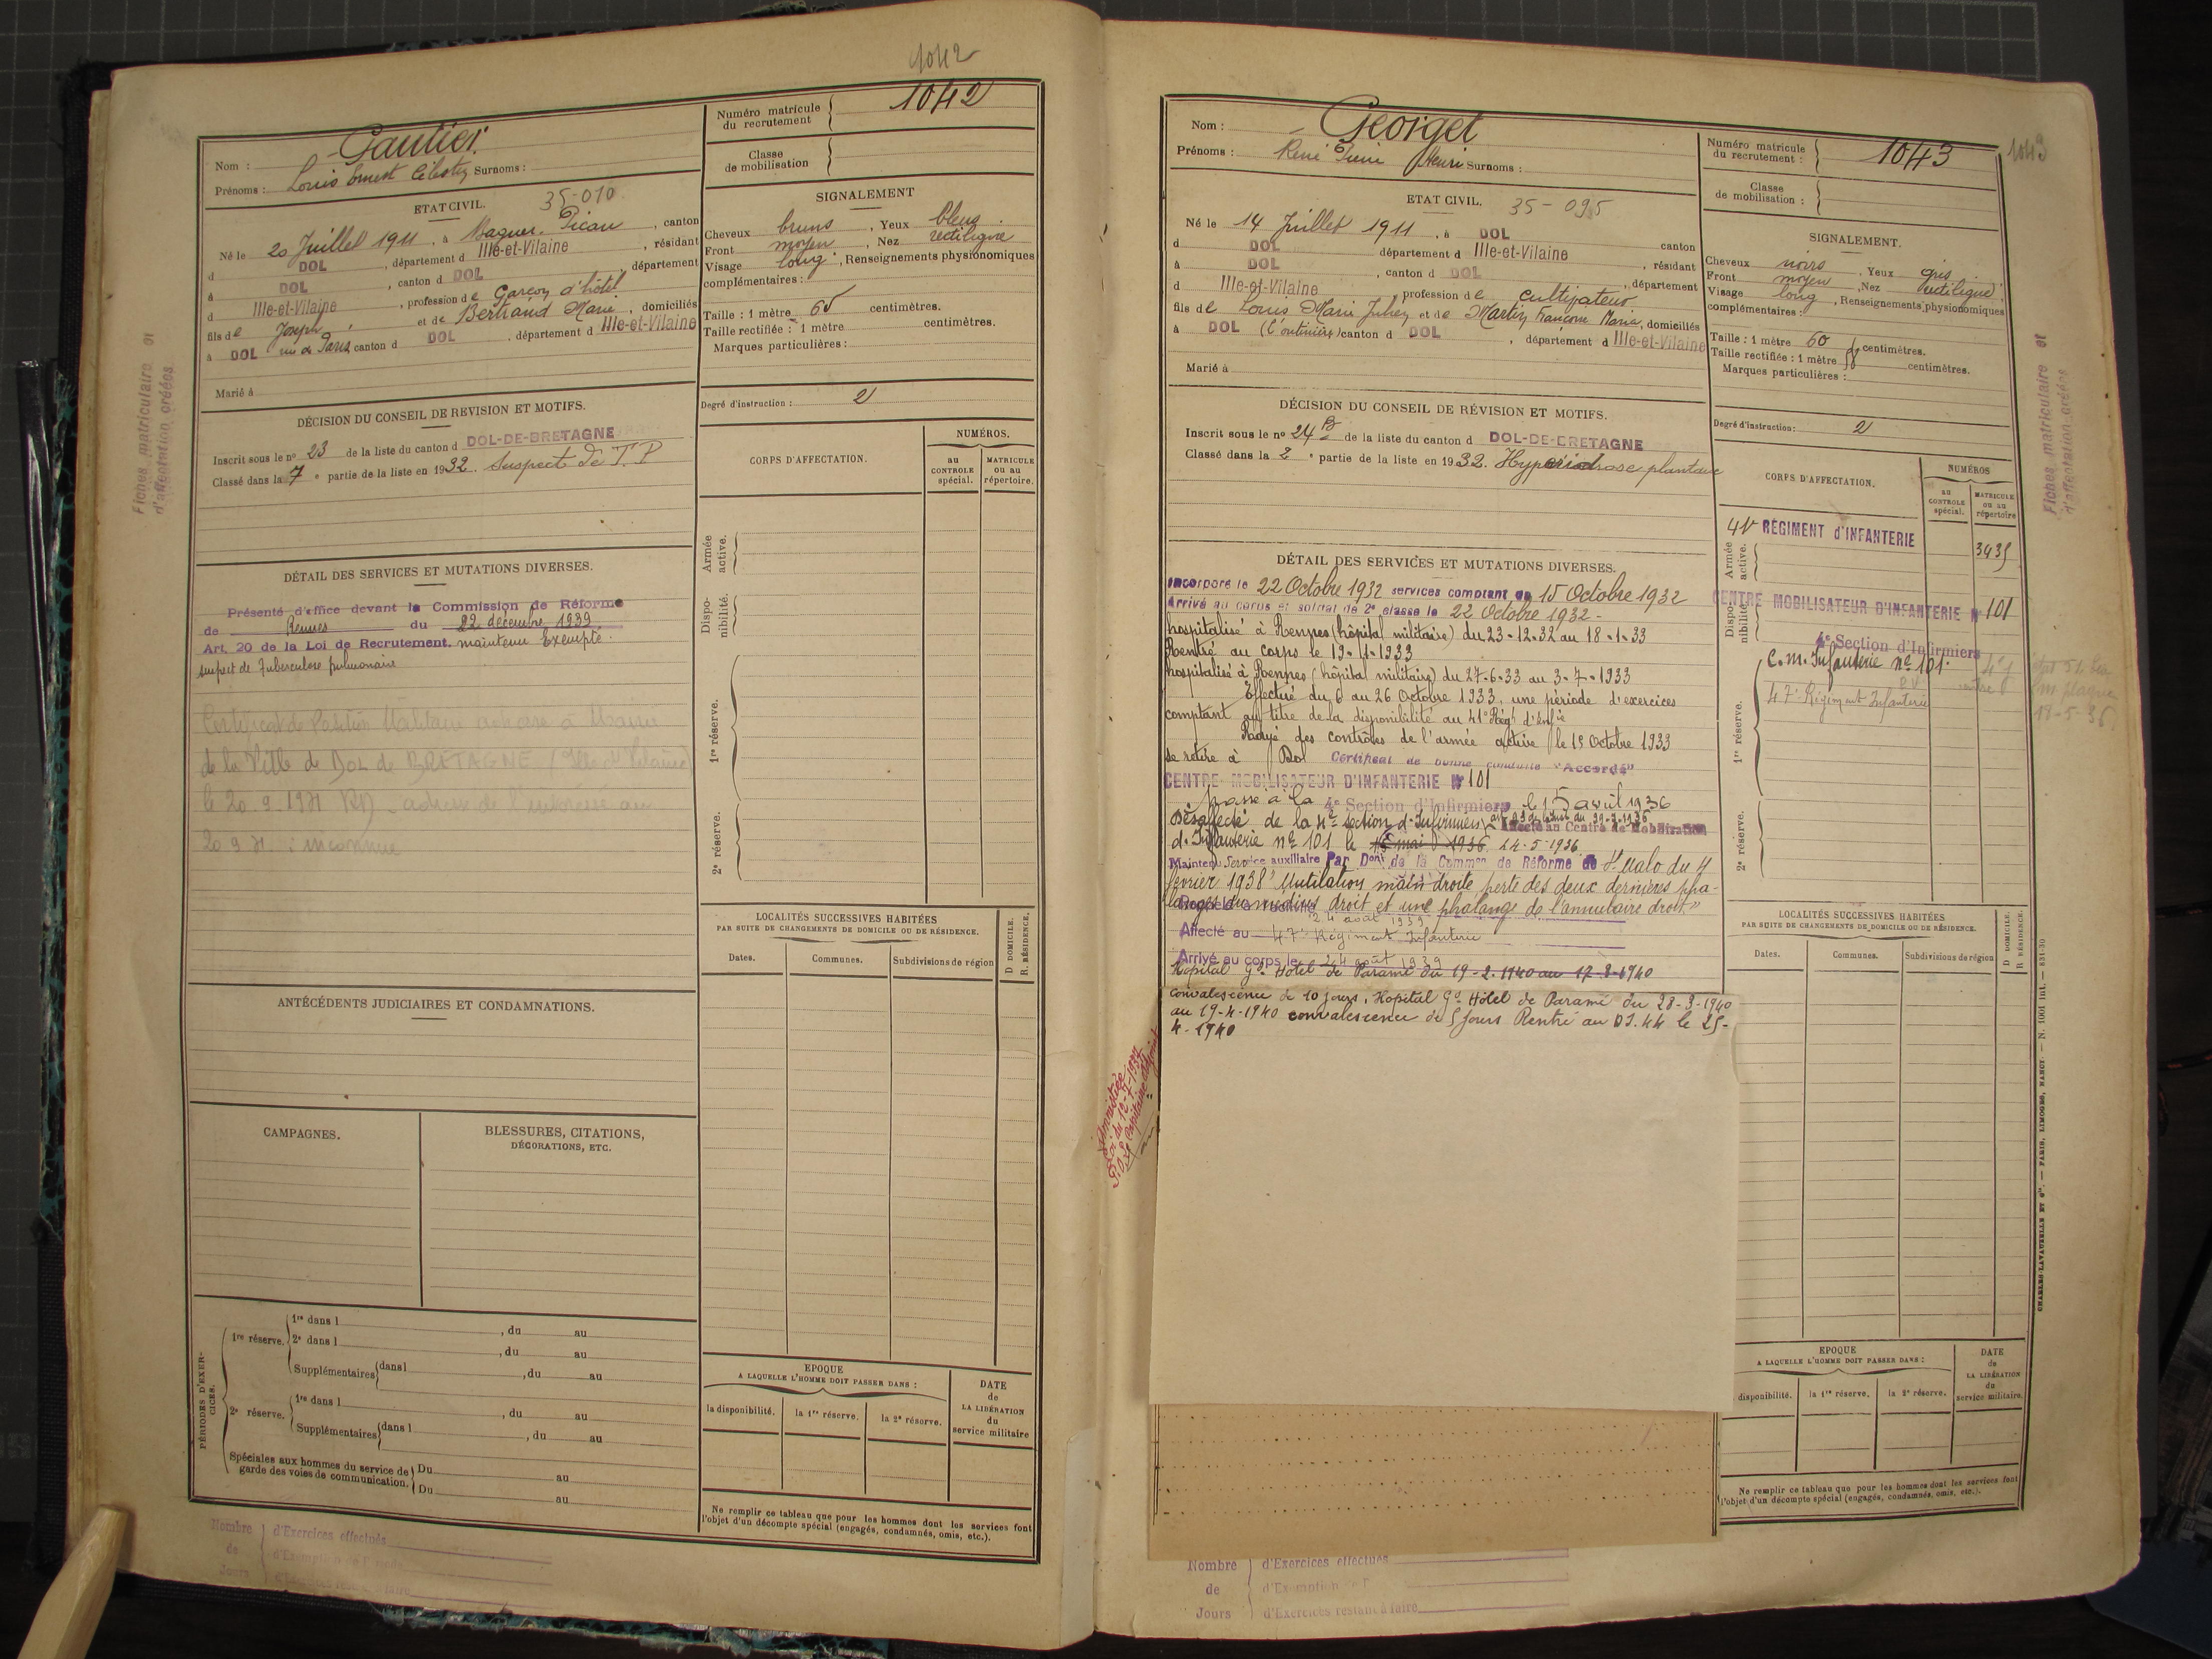 1042
Numéro matricule du recrutement 1042
Nom : Gautier
Prénoms : Louis Ernest Célestin Surnoms :
Classe de mobilisation
ETAT CIVIL. 35-010
Né le 20 Juillet 1911, à Baguer-Pican, canton
d DOL, département d Ille-et-Vilaine, résidant
à DOL, canton d DOL, département
d Ille-et-Vilaine, profession de Garçon d'hôtel
fils de Joseph et de Bertrand Marie, domiciliés
à DOL rue de Paris canton d DOL, département d Ille-et-Vilaine
Marié à
SIGNALEMENT
Cheveux bruns, Yeux bleus
Front moyen, Nez rectiligne
Visage long, Renseignements physionomiques
complémentaires :
Taille : 1 mètre 65 centimètres.
Taille rectifiée : 1 mètre centimètres.
Marques particulières :
Degré d'instruction : 2
DÉCISION DU CONSEIL DE REVISION ET MOTIFS.
Inscrit sous le nº 23 de la liste du canton d DOL-DE-BRETAGNE
Classé dans la 7e partie de la liste en 1932. Suspect de T. P
DÉTAIL DES SERVICES ET MUTATIONS DIVERSES.
Présenté d'office devant la Commission de Réforme
de Rennes du 22 décembre 1939
Art. 20 de la Loi de Recrutement. maintenu Exempté.
suspect de Tuberculose pulmonaire
Certificat de Position Militaire adressé à Mairie
de la Ville de DOL de BRETAGNE (Ille et Vilaine)
le 20 9 1971 adresse de l'intéressé au
20 9 71 : inconnue
ANTÉCÉDENTS JUDICIAIRES ET CONDAMNATIONS.
CAMPAGNES.
BLESSURES, CITATIONS,
DÉCORATIONS, ETC.
PÉRIODES D'EXERCICES.
1re réserve. 1re dans l , du au
2e dans l , du au
Supplémentaires dans l , du au
2e réserve. 1re dans l , du au
Supplémentaires dans l , du au
Spéciales aux hommes du service de garde des voies de communication. Du au
Du au
Nombre de Jours
d'Exercices effectués
CORPS D'AFFECTATION.
NUMÉROS.
au CONTROLE spécial.
MATRICULE ou au répertoire.
Armée active.
Disponibilité.
1re réserve.
2e réserve.
LOCALITÉS SUCCESSIVES HABITÉES
PAR SUITE DE CHANGEMENTS DE DOMICILE OU DE RÉSIDENCE.
D DOMICILE.
R. RÉSIDENCE.
Dates. Communes. Subdivisions de région
EPOQUE
A LAQUELLE L'HOMME DOIT PASSER DANS :
la disponibilité. la 1re réserve. la 2e réserve.
DATE de LA LIBÉRATION du service militaire
Ne remplir ce tableau que pour les hommes dont les services font
l'objet d'un décompte spécial (engagés, condamnés, omis, etc.).
Fiches matriculaire et
d'affectation créées
Nom : Georget
Prénoms : René Pierre Henri Surnoms :
Numéro matricule du recrutement : 1043
1043
Classe de mobilisation :
ETAT CIVIL. 35-095
Né le 14 Juillet 1911, à DOL canton
d DOL département d Ille-et-Vilaine, résidant
à DOL, canton d DOL, département
d Ille-et-Vilaine profession de cultivateur
fils de Louis Marie Julien et de Martin Françoise Marie, domiciliés
à DOL canton d DOL, département d Ille-et-Vilaine
Marié à
SIGNALEMENT.
Cheveux noirs, Yeux gris
Front moyen, Nez rectiligne
Visage long, Renseignements physionomiques
complémentaires :
Taille : 1 mètre 60 centimètres.
Taille rectifiée : 1 mètre centimètres.
Marques particulières :
Degré d'instruction : 2
DÉCISION DU CONSEIL DE RÉVISION ET MOTIFS.
Inscrit sous le nº 24 B de la liste du canton d DOL-DE-BRETAGNE
Classé dans la 2e partie de la liste en 1932. Hyperidrose plantaire
DÉTAIL DES SERVICES ET MUTATIONS DIVERSES.
Incorporé le 22 Octobre 1932 services comptant du 15 Octobre 1932
Arrivé au corps et soldat de 2e classe le 22 Octobre 1932 -
hospitalisé à Rennes (hôpital militaire) du 23-12-32 au 18-1-33
Rentré au corps le 19-1-1933
hospitalisé à Rennes (hôpital militaire) du 27-6-33 au 3-7-1933
Effectué du 6 au 26 Octobre 1933, une période d'exercices
comptant au titre de la disponibilité au 41e Régt d'Infie
Rayé des contrôles de l'armée active le 15 Octobre 1933
se retire à Dol Certificat de bonne conduite "Accordé"
CENTRE MOBILISATEUR D'INFANTERIE Nº 101
passé à la 4e Section d'Infirmiers le 15 avril 1936
Désaffecté de la 4e section d'Infirmiers Affecté au Centre de Mobilisation
d'Infanterie nº 101 le 15 mai 1936. 24-5-1936
Maintenu Service auxiliaire Par Don de la Common de Réforme de St Malo du 4
février 1938 "Mutilation main droite, perte des deux dernières pha-
langes du médius droit et une phalange de l'annulaire droit"
24 août 1939
Affecté au 47e Régiment Infanterie
Arrivé au corps le 24 août 1939
Hôpital Gd Hotel de Paramé du 19-2-1940 au 17-3-1940
Convalescence de 10 jours. Hopital Gd Hôtel de Paramé du 28-3-1940
au 19-4-1940 convalescence de 5 jours Rentré au DI. 44 le 25-
4-1940
Amnistiée
Loi du 12-7-1937
P.O. Le Capitaine adjoint
CORPS D'AFFECTATION.
NUMÉROS
au CONTROLE spécial.
MATRICULE ou au répertoire
Armée active.
41e RÉGIMENT d'INFANTERIE 3435
Disponibilité
CENTRE MOBILISATEUR D'INFANTERIE Nº 101
4e Section d'Infirmiers
C. M. Infanterie nº 101.
47e Régiment Infanterie
18-5-36
1re réserve.
2e réserve.
LOCALITÉS SUCCESSIVES HABITÉES
PAR SUITE DE CHANGEMENTS DE DOMICILE OU DE RÉSIDENCE.
D DOMICILE.
R RÉSIDENCE.
Dates. Communes. Subdivisions de région
EPOQUE
A LAQUELLE L'HOMME DOIT PASSER DANS :
disponibilité. la 1re réserve. la 2e réserve.
DATE de LA LIBÉRATION du service militaire.
Ne remplir ce tableau que pour les hommes dont les services font
l'objet d'un décompte spécial (engagés, condamnés, omis, etc.).
Nombre de Jours
d'Exercices effectués
d'Exemption
d'Exercices restant à faire
Fiches matriculaire et
d'affectation créées
CHARLES-LAVAUZELLE ET Cie. — PARIS, LIMOGES, NANCY. — N. 1001 int. — 831-30